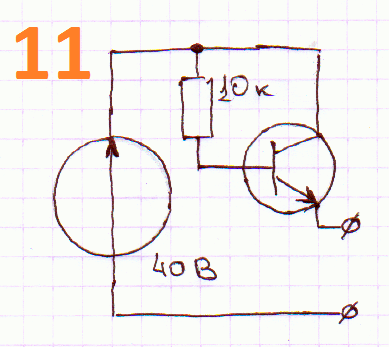 11
10к
40В